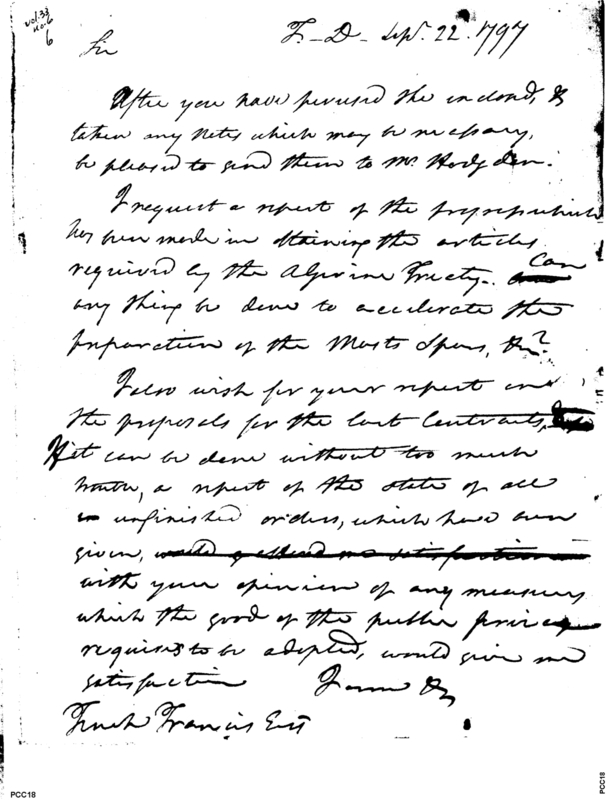 vol. 33
no. 6
6
T. D. Sepr. 22. 1797
Sir
After you have perused the inclosed, &
taken any notes which may be necessary,
be pleased to send them to Mr. Hodgden.
I request a report of the progress which
has been made in obtaining the articles
required by the Algerine Treaty. Can
any thing be done to accelerate the
preparation of the Masts Spars, &c?
I also wish for your report on
the proposals for the last Contracts,
If it can be done without too much
trouble, a report of the state of all
unfinished orders, which have been
given, would afford me satisfaction
with your opinion of any measures
which the good of the public service
requires to be adopted, would give me
satisfaction I am &c
Tench Francis Esqr
PCC18
PCC18